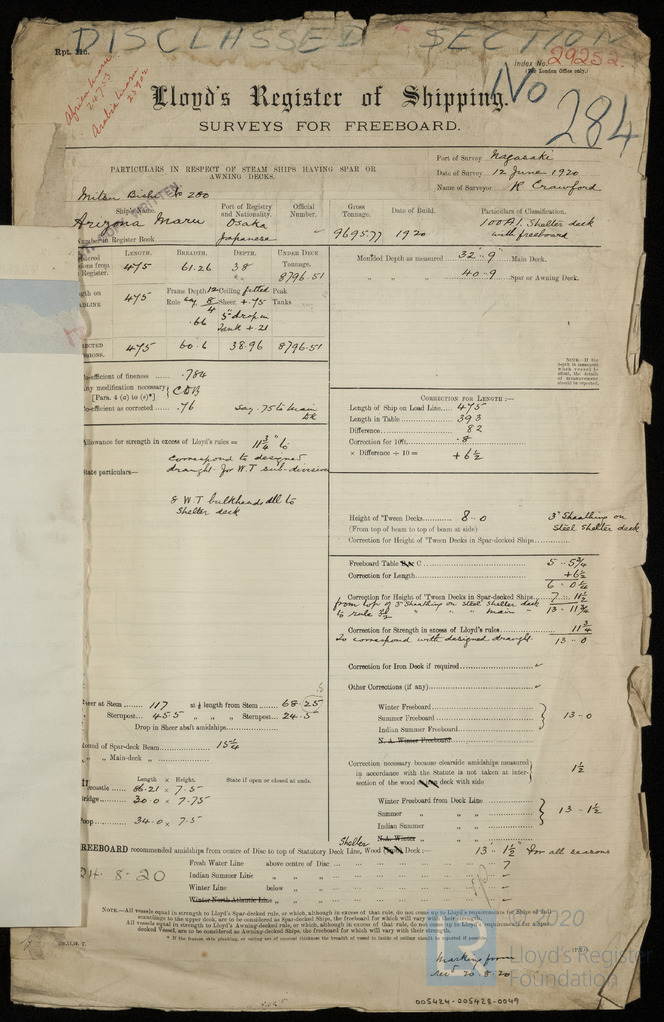 DISCLASSED SECTION
Rpt. 11c.
Index No. 29252.
(For London Office only.)
No 284
Africa Maru
24753
Arabia Maru
Lloyd's Register of Shipping.
SURVEYS FOR FREEBOARD.
PARTICULARS IN RESPECT OF STEAM SHIPS HAVING SPAR OR AWNING DECKS.
Port of Survey Nagasaki
Date of Survey 12 June 1920
Name of Surveyor R Crawford
Mitsu Bishi No 280
Ship's Name Port of Registry and Nationality. Official Number. Gross Tonnage. Date of Build. Particulars of Classification.
Arizona Maru Osaka Japanese 9695.77 1920 100A1. Shelter deck with freeboard
Number in Register Book
LENGTH. BREADTH. DEPTH. UNDER DECK Tonnage.
Register. 475 61.26 38 8796.51
475 Frame Depth 12 Ceiling fitted Peak
Rule say 8/4 Sheer +.75 Tanks
.66 5" drop in Tank +.21
475 60.6 38.96 8796.51
Co-efficient of fineness .784
Any modification necessary [Para. 4 (a) to (e)*] CDB
Co-efficient as corrected .76 Say .75 to Main DK
Moulded Depth as measured 32'.. 9" Main Deck.
" " " 40 .. 9 Spar or Awning Deck.
NOTE.—If the depth is measured when vessel is afloat, the details of measurement should be reported.
CORRECTION FOR LENGTH:—
Length of Ship on Load Line 475
Length in Table 393
Difference 82
Correction for 10ft. .8
× Difference ÷ 10 = +6½
Allowance for strength in excess of Lloyd's rules = 11¾" to
correspond to designed
State particulars— draught for W.T sub-division
8 W.T bulkheads all to
Shelter deck
Height of 'Tween Decks 8 - 0 3" Sheathing on
(From top of beam to top of beam at side) Steel Shelter deck
Correction for Height of 'Tween Decks in Spar-decked Ships
Freeboard Table C 5 .. 5¾
Correction for Length +6½
6 - 0¼
Correction for Height of 'Tween Decks in Spar-decked Ships 7 .. 11½
from top of 3" Sheathing on steel shelter deck 13 - 11¾
to rule 3½ " " " main "
Correction for Strength in excess of Lloyd's rules 11¾
To correspond with designed draught 13 - 0
Correction for Iron Deck if required
Other Corrections (if any)
Sheer at Stem 117 at ⅛ length from Stem 68.25
" Sternpost 45.5 " " " Sternpost 24.5
Drop in Sheer abaft amidships
Round of Spar-deck Beam 15¼
" " Main-deck "
Winter Freeboard
Summer Freeboard 13 - 0
Indian Summer Freeboard
N. A. Winter Freeboard
Correction necessary because clearside amidships measured
in accordance with the Statute is not taken at inter- 1½
section of the wood deck with side
Length × Height. State if open or closed at ends.
Forecastle 86.21 × 7.5
Bridge 30.0 × 7.75
Poop 34.0 × 7.5
Winter Freeboard from Deck Line
Summer " " " 13 - 1½
Indian Summer " "
N.A. Winter " "
FREEBOARD recommended amidships from centre of Disc to top of Statutory Deck Line, Wood Shelter Deck:— 13 - 1½" for all seasons
Fresh Water Line above centre of Disc 7
Indian Summer Line " "
Winter Line below "
Winter North Atlantic Line " "
24.8.20
NOTE.—All vessels equal in strength to Lloyd's Spar-decked rule, or which, although in excess of that rule, do not come up to Lloyd's requirements for Ships of full scantlings to the upper deck, are to be considered as Spar-decked Ships, the freeboard for which will vary with their strength.
All vessels equal in strength to Lloyd's Awning-decked rule, or which, although in excess of that rule, do not come up to Lloyd's requirements for a Spar-decked Vessel, are to be considered as Awning-decked Ships, the freeboard for which will vary with their strength.
Marking form
rec'd 20.8.20
© 2020
Lloyd's Register
Foundation
005424-005428-0049